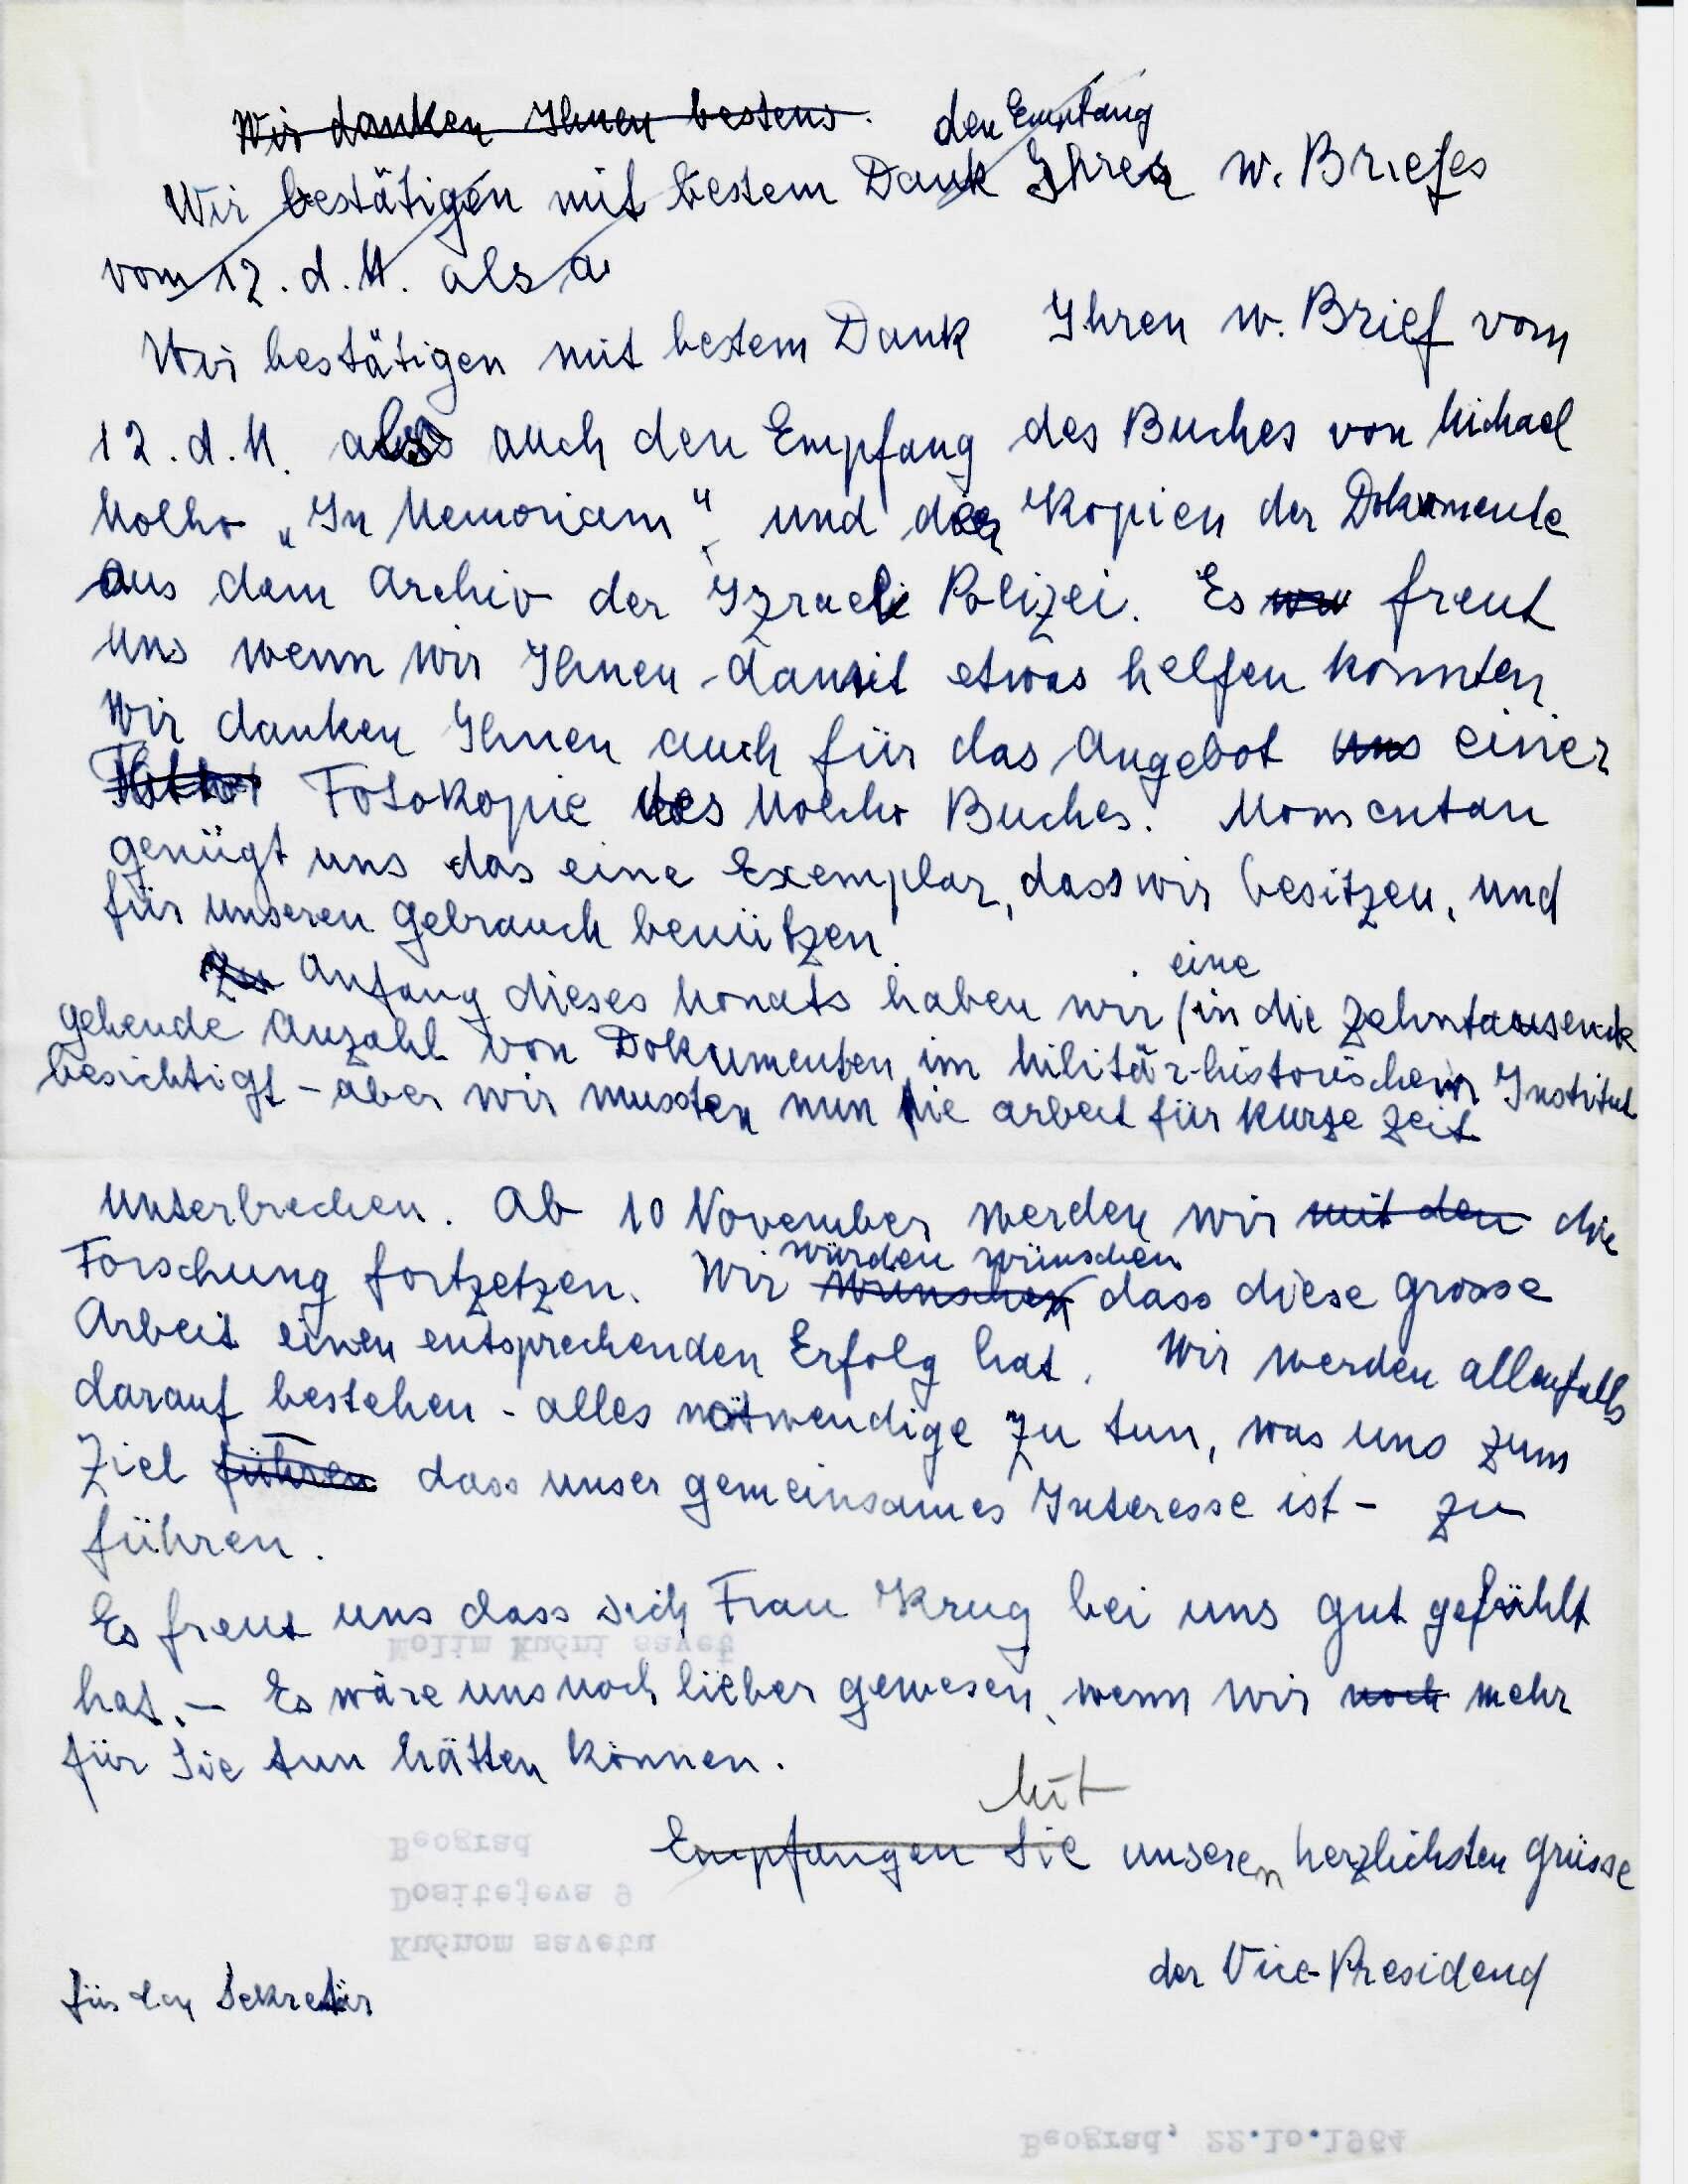 Wir danken Ihnen bestens.
den Empfang
Wir bestätigen mit bestem Dank Ihres w. Briefes
vom 12. d. M. als a
Wir bestätigen mit bestem Dank Ihren w. Brief vom
12. d. M. als auch den Empfang des Buches von Michael
Molho „In Memoriam" und der Kopien der Dokumente
aus dem Archiv der Izraeli Polizei. Es freut
uns wenn wir Ihnen damit etwas helfen konnten
Wir danken Ihnen auch für das Angebot uns einer
Fotokopie des Molho Buches. Momentan
genügt uns das eine Exemplar, dass wir besitzen, und
für unseren Gebrauch benützen.
Zu Anfang dieses Monats haben wir eine in die Zehntausende
gehende Anzahl von Dokumenten im Militär-historischen Institut
besichtigt - aber wir mussten nun die Arbeit für kurze Zeit
unterbrechen. Ab 10 November werden wir mit den die
Forschung fortzetzen. Wir wünschen würden wünschen dass diese grosse
Arbeit einen entsprechenden Erfolg hat. Wir werden allenfalls
darauf bestehen - alles notwendige zu tun, was uns zum
Ziel führen dass unser gemeinsames Interesse ist - zu
führen.
Es freut uns dass sich Frau Krug bei uns gut gefühlt
hat. - Es wäre uns noch lieber gewesen, wenn wir noch mehr
für Sie tun hätten können.
Mit
Empfangen Sie unseren herzlichsten Grüsse
der Vice-Presidend
für den Sekretär
Molim Kućni savet
Beograd
Dositejeva 9
Kućnom savetu
Beograd, 22.10.1964